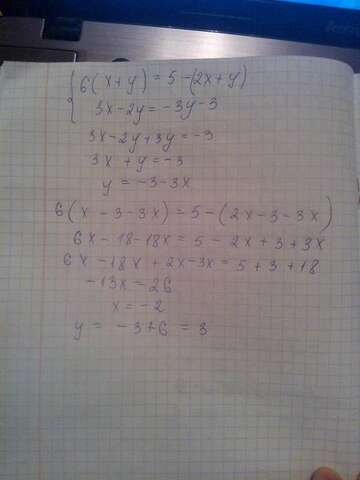 6(x+y) = 5-(2x+y)
3x-2y = -3y-3
3x-2y+3y = -3
3x + y = -3
y = -3-3x
6(x-3-3x) = 5-(2x-3-3x)
6x-18-18x = 5-2x+3+3x
6x-18x+2x-3x = 5+3+18
-13x = 26
x = -2
y = -3+6 = 3